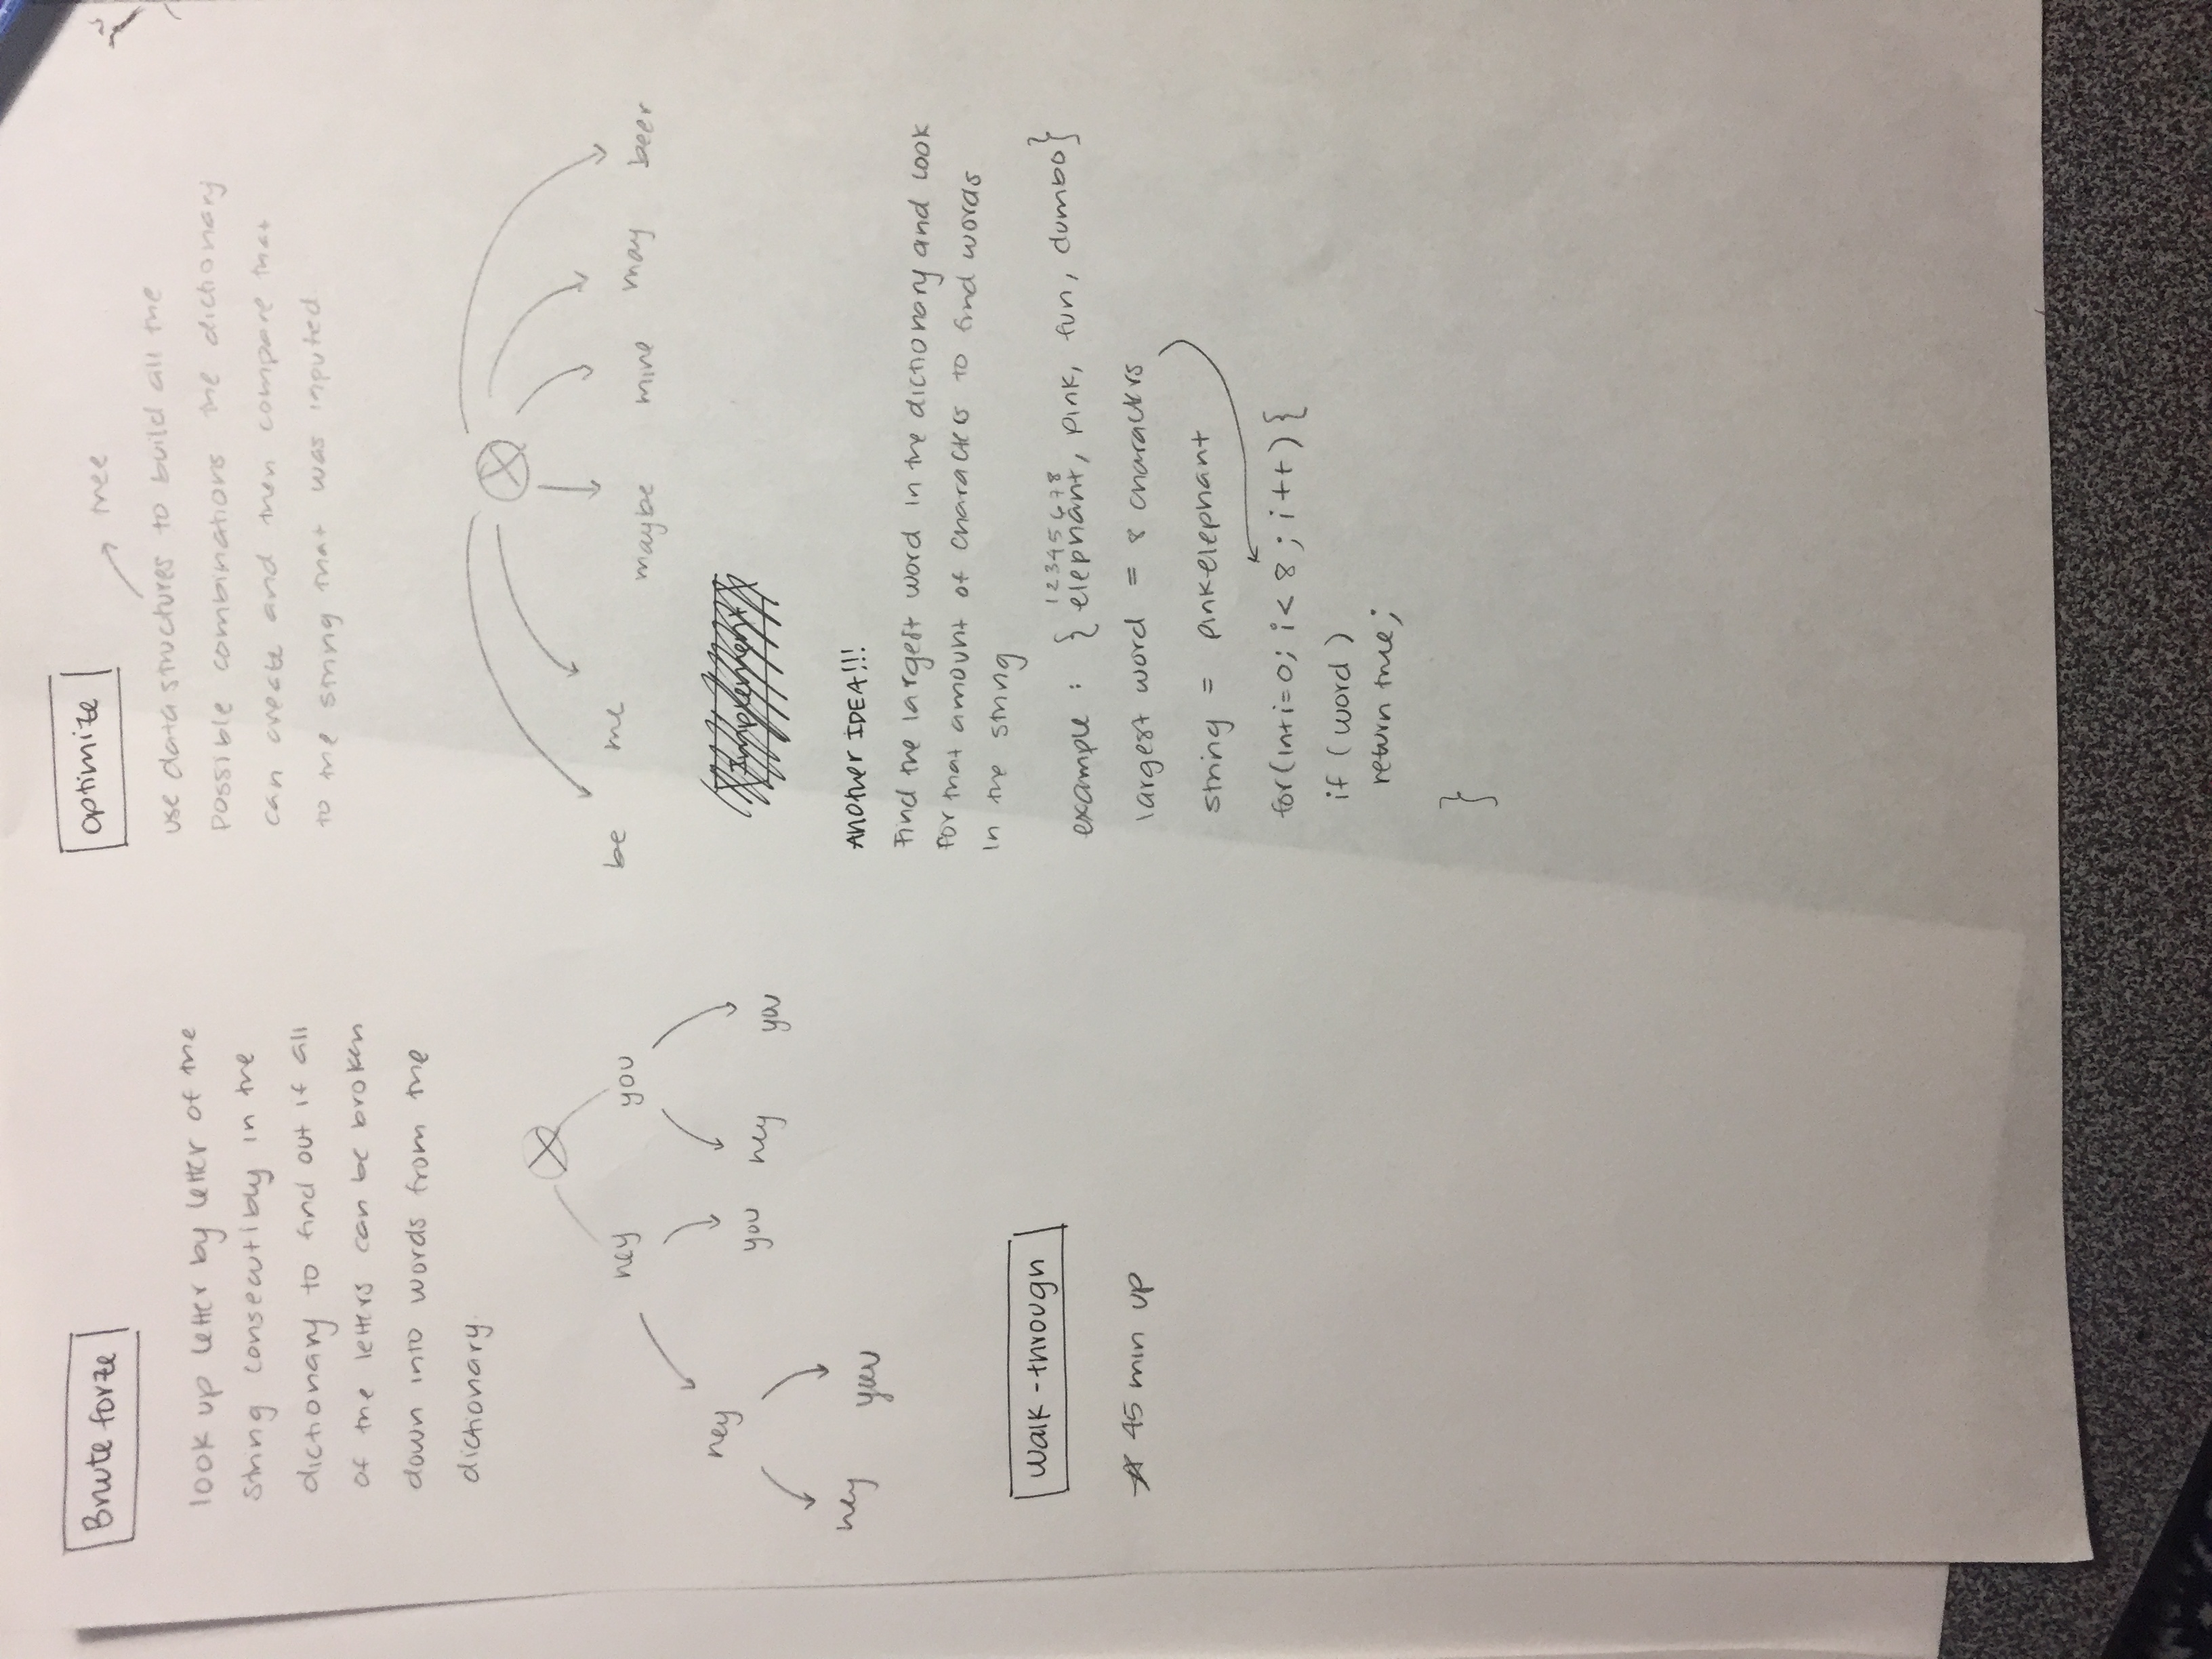 Brute forze
look up letter by letter of the
string consecutibly in the
dictionary to find out if all
of the letters can be broken
down into words from the
dictionary.
hey you
hey you hey you
hey you
Walk-through
45 min up
optimize
tree
use data structures to build all the
possible combinations the dictionary
can create and then compare that
to the string that was inputed.
be me maybe mine may beer
Implement
Another IDEA!!!
Find the largest word in the dictionary and look
for that amount of characters to find words
in the string
12345678
example : { elephant, pink, fun, dumbo}
largest word = 8 characters
string = pinkelephant
for(int i=0; i< 8 ; i++){
if (word)
return true;
}